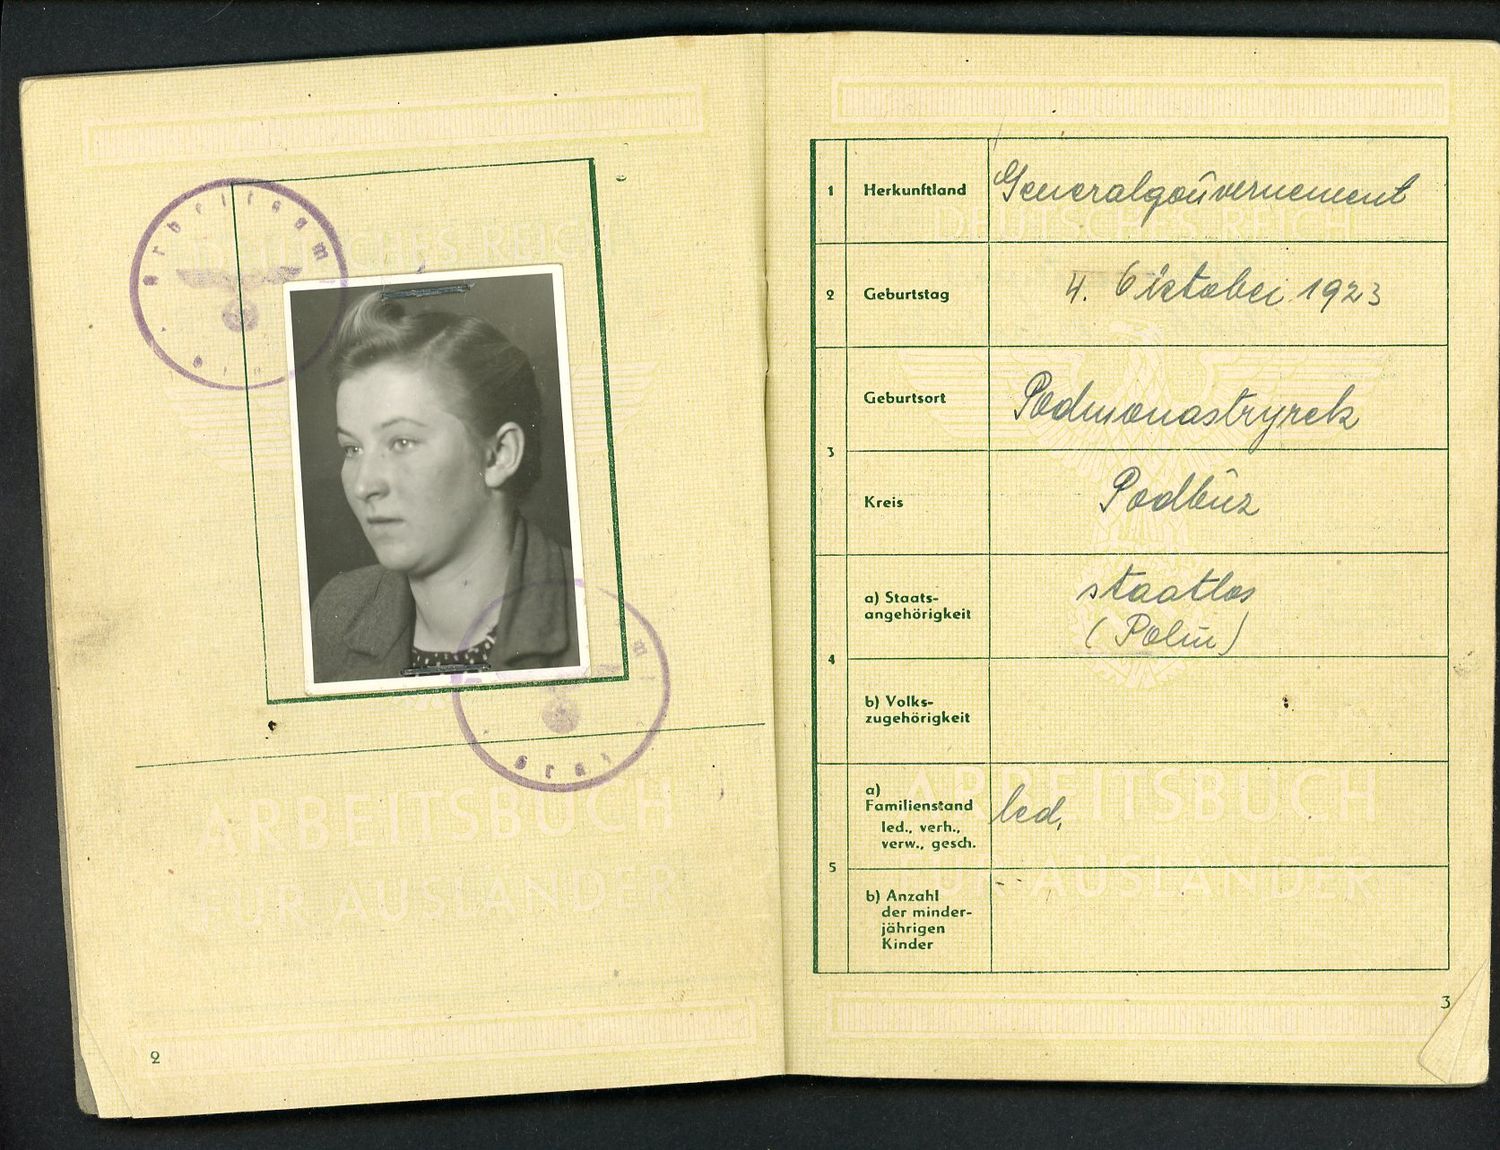 Arbeitsam
DEUTSCHES REICH
ARBEITSBUCH
FÜR AUSLÄNDER
2
DEUTSCHES REICH
1 Herkunftland Generalgouvernement
2 Geburtstag 4. Oktober 1923
3 Geburtsort Podmonastyrek
Kreis Podbuz
4 a) Staats-
angehörigkeit staatlos
(Polin)
b) Volks-
zugehörigkeit
5 a)
Familienstand
led., verh.,
verw., gesch. led.
b) Anzahl
der minder-
jährigen
Kinder
ARBEITSBUCH
FÜR AUSLÄNDER
3